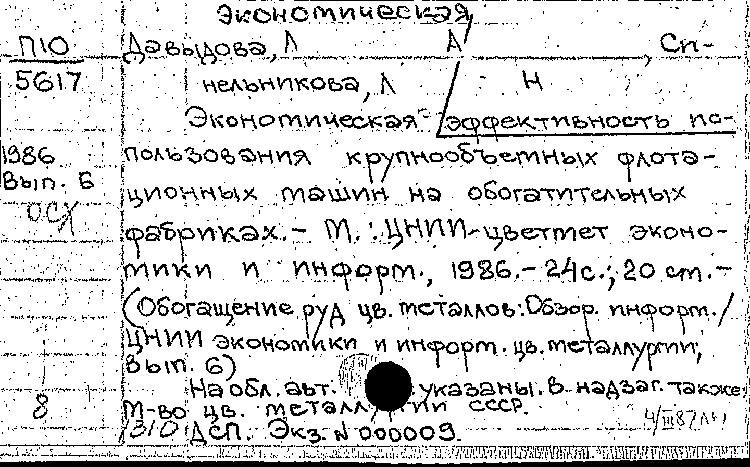 Экономическая
П10 Давыдова, Л А , Си-
5617 нельникова, Л Н
Экономическая эффективность ис-
1986 пользования крупнообъемных флота-
Вып. 6 ционных машин на обогатительных
ОСХ фабриках.- М.: ЦНИИ-цветмет эконо-
мики и информ., 1986.- 24с.; 20 см.-
(Обогащение руд цв. металлов: Обзор. информ. /
ЦНИИ экономики и информ. цв. металлургии;
Вып. 6)
На обл. авт. указаны. В надзаг. также:
8 М-во цв. металлургии СССР.
ДСП. Экз. N 000009.